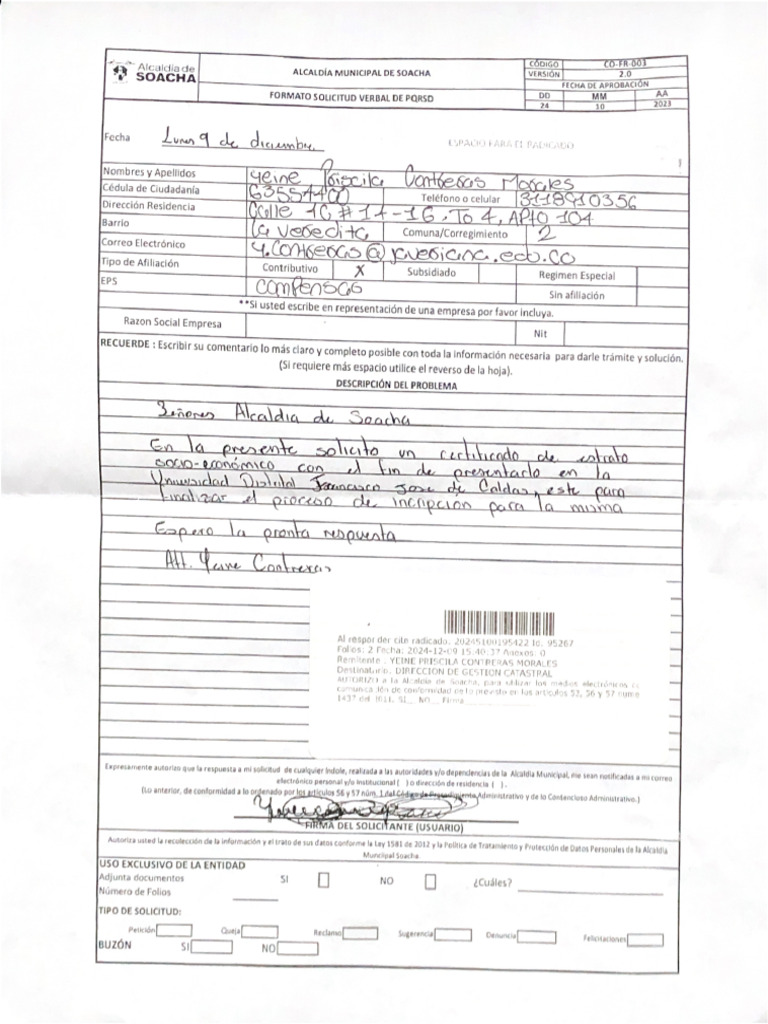 Alcaldía de SOACHA
ALCALDÍA MUNICIPAL DE SOACHA
FORMATO SOLICITUD VERBAL DE PQRSD
CÓDIGO CO-FR-003
VERSIÓN 2.0
FECHA DE APROBACIÓN
DD MM AA
24 10 2023
Fecha Lunes 9 de diciembre
ESPACIO PARA EL RADICADO
Nombres y Apellidos Yeine Priscila Contreras Morales
Cédula de Ciudadanía 63554400 Teléfono o celular 3118910356
Dirección Residencia Calle 1C # 14-16, To 4, APTO 104
Barrio la veredita Comuna/Corregimiento 2
Correo Electrónico y.contreras@javeriana.edu.co
Tipo de Afiliación Contributivo X Subsidiado Regimen Especial
EPS compensar Sin afiliación
**Si usted escribe en representación de una empresa por favor incluya.
Razon Social Empresa Nit
RECUERDE : Escribir su comentario lo más claro y completo posible con toda la información necesaria para darle trámite y solución.
(Si requiere más espacio utilice el reverso de la hoja).
DESCRIPCIÓN DEL PROBLEMA
Señores Alcaldia de Soacha
En la presente solicito un certificado de estrato
socio-económico con el fin de presentarlo en la
Universidad Distrital Francisco Jose de Caldas, este para
finalizar el proceso de incripción para la misma
Espero la pronta respuesta
Att. Yeine Contreras
Al responder cite radicado. 20245100195422 Id. 95267
Folios: 2 Fecha: 2024-12-09 15:40:37 Anexos: 0
Remitente . YEINE PRISCILA CONTRERAS MORALES
Destinatario. DIRECCION DE GESTION CATASTRAL
AUTORIZO a la Alcaldia de Soacha, para utilizar los medios electrónicos de
comunicación de conformidad de lo previsto en los artículos 53, 56 y 57 nume
1437 del 2011. SI__ NO__ Firma
Expresamente autorizo que la respuesta a mi solicitud de cualquier índole, realizada a las autoridades y/o dependencias de la Alcaldía Municipal, me sean notificadas a mi correo
electrónico personal y/o institucional ( ) o dirección de residencia ( ).
(Lo anterior, de conformidad a lo ordenado por los artículos 56 y 57 núm. 1 del Código de Procedimiento Administrativo y de lo Contencioso Administrativo.)
FIRMA DEL SOLICITANTE (USUARIO)
Autoriza usted la recolección de la información y el trato de sus datos conforme la Ley 1581 de 2012 y la Política de Tratamiento y Protección de Datos Personales de la Alcaldía
Municipal Soacha
USO EXCLUSIVO DE LA ENTIDAD
Adjunta documentos SI NO ¿Cuáles?
Número de Folios
TIPO DE SOLICITUD:
Petición Queja Reclamo Sugerencia Denuncia Felicitaciones
BUZÓN SI NO